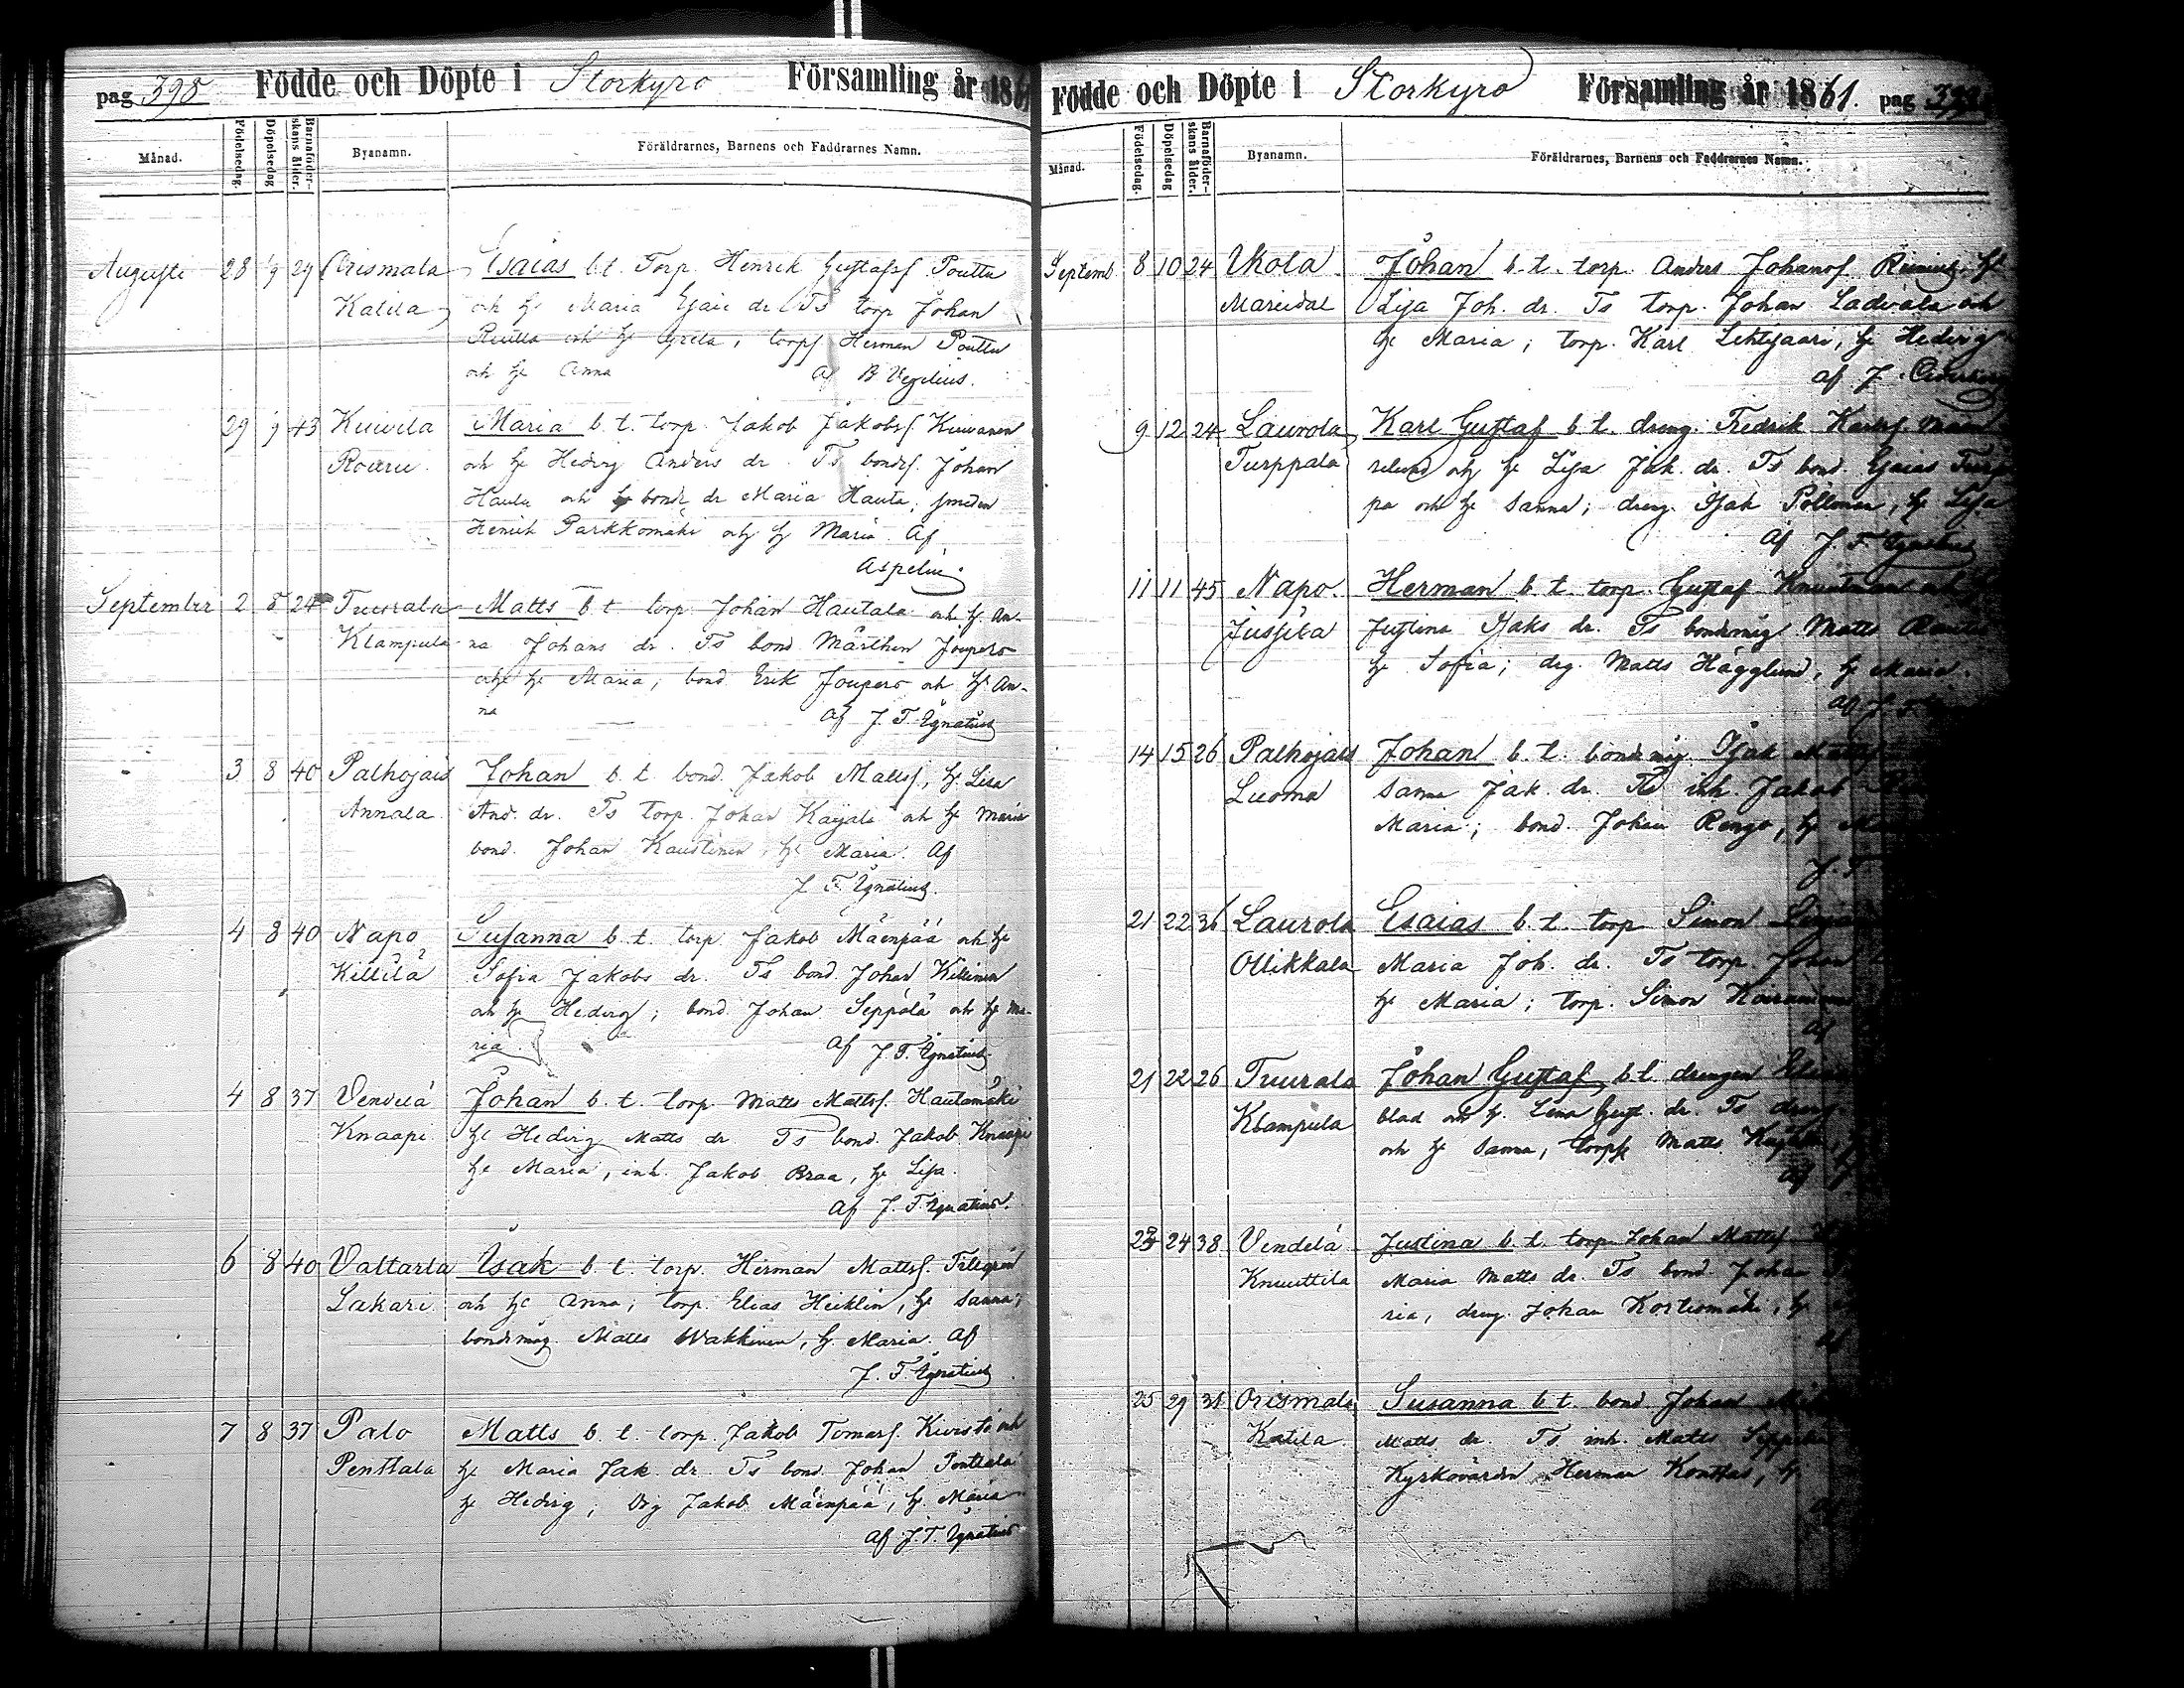 pag 398 Födde och Döpte i Storkyro Församling år 1861
Månad. Födelsedag. Döpelsedag Barnaföder-skans ålder. Byanamn. Föräldrarnes, Barnens och Faddrarnes Namn.
Augusti 28 1/9 29 Orismala Esaias b. t. Torp. Henrik Gustafsf Poutta
Katila och hf Maria Esaie dr Ts torp Johan
och hf Greta, torpf Herman Pouttu
och hf Anna Af B Vegelius.
29 1/9 43 Kuivila Maria b. t. torp. Jakob Jakobsf. Kuivanen
och hf Hedvig Anders dr. Ts bondf. Johan
Hauta och bond dr Maria Hauta, smeden
Henrik Parkkomäki och hf Maria. Af
Aspelin.
September 2 8 24 Tuurala Matts b t torp Johan Hautala och hf. An-
Klampula na Johans dr. Ts bond Mårthen Joupero
och hf Maria; bond Erik Joupero och hf An-
na Af J. F. Ignatius
3 8 40 Palhojais Johan b. t. bond. Jakob Mattsf, hf. Lisa
Annala And. dr. Ts torp. Johan och hf Maria
bond. Johan Kaustinen, hf Maria. Af
J. F. Ignatius.
4 8 40 Napo Susanna b. t. torp Jakob Mäenpää och hf
Killilä Sofia Jakobs dr. Ts bond. Johan Killinen
och hf Hedvig; bond Johan Seppälä och hf Ma-
ria. Af J. F. Ignatius
4 8 37 Vendelä Johan b. t. torp Matts Mattsf. Hautamäki
Knaapi hf Hedvig Matts dr Ts bond. Jakob Knaapi
hf Maria, inh. Jakob Braa, hf Lisa.
Af J. F. Ignatius.
6 8 40 Valtarla Isak b. t. torp. Herman Mattsf.
Sakari och hf Anna; torp. Elias Heiklin, hf Sanna;
bondemåg Matts Wakkinen, hf. Maria. Af
J. F. Ignatius
7 8 37 Palo Matts b. t. torp. Jakob Tomasf. Kivistö och
Penttala hf Maria Jak. dr. Ts bond. Johan Penttala
hf Hedvig; Jakob Mäenpää, hf. Maria
Af J. F. Ignatius
Födde och Döpte i Storkyro Församling år 1861. pag 399
Månad. Födelsedag. Döpelsedag Barnaföder-skans ålder. Byanamn. Föräldrarnes, Barnens och Faddrarnes Namn.
Septemb 8 10 24 Ukola Johan b. t. torp. Anders Johansf. hf
Mariedal Lisa Joh. dr. Ts torp. Johan Ladvala och
hf Maria; torp. Karl Lehtisaari, hf Hedvig
af J.
9 12 24 Laurola Karl Gustaf b t. dreng. Fredrik Karlsf.
Turppala och hf Lisa Jak. dr. Ts bond. Esaias Turp
pa och hf Sanna; dreng. Isak Pollönen, hf Lisa
af J. F. Ignatius
11 11 45 Napo. Herman b. t. torp. Gustaf Knuutinen och
Jussila Justina Isaks dr. Ts bondemåg Matts
hf Sofia; drg. Matts Hägglund, hf Maria.
Af J. F.
14 15 26 Palhojais Johan b. t. bondmåg. Isak
Luoma Sanna Jak. dr. Ts inh. Jakob
Maria; bond. Johan Rengo, hf
J. F.
21 22 36 Laurola Esaias b. t. torp Simon
Ollikkala Maria Joh. dr. Ts torp. Johan
hf Maria; torp. Simon
Af
21 22 26 Tuurala Johan Gustaf b. t. drengen Elias
Klampula blad och hf. Lena Gust. dr. Ts dreng
och hf Sanna, torpf Matts
af
23 24 38 Vendelä Justina b. t. torp. Johan Mattsf
Knuuttila Maria Matts dr. Ts bond. Johan
ria, dreng. Johan Kortesmäki, hf
af
25 29 31 Orismala Susanna b. t. bond Johan
Katila Matts dr. Ts inh. Matts
Kyrkovärden Herman Konttas, hf